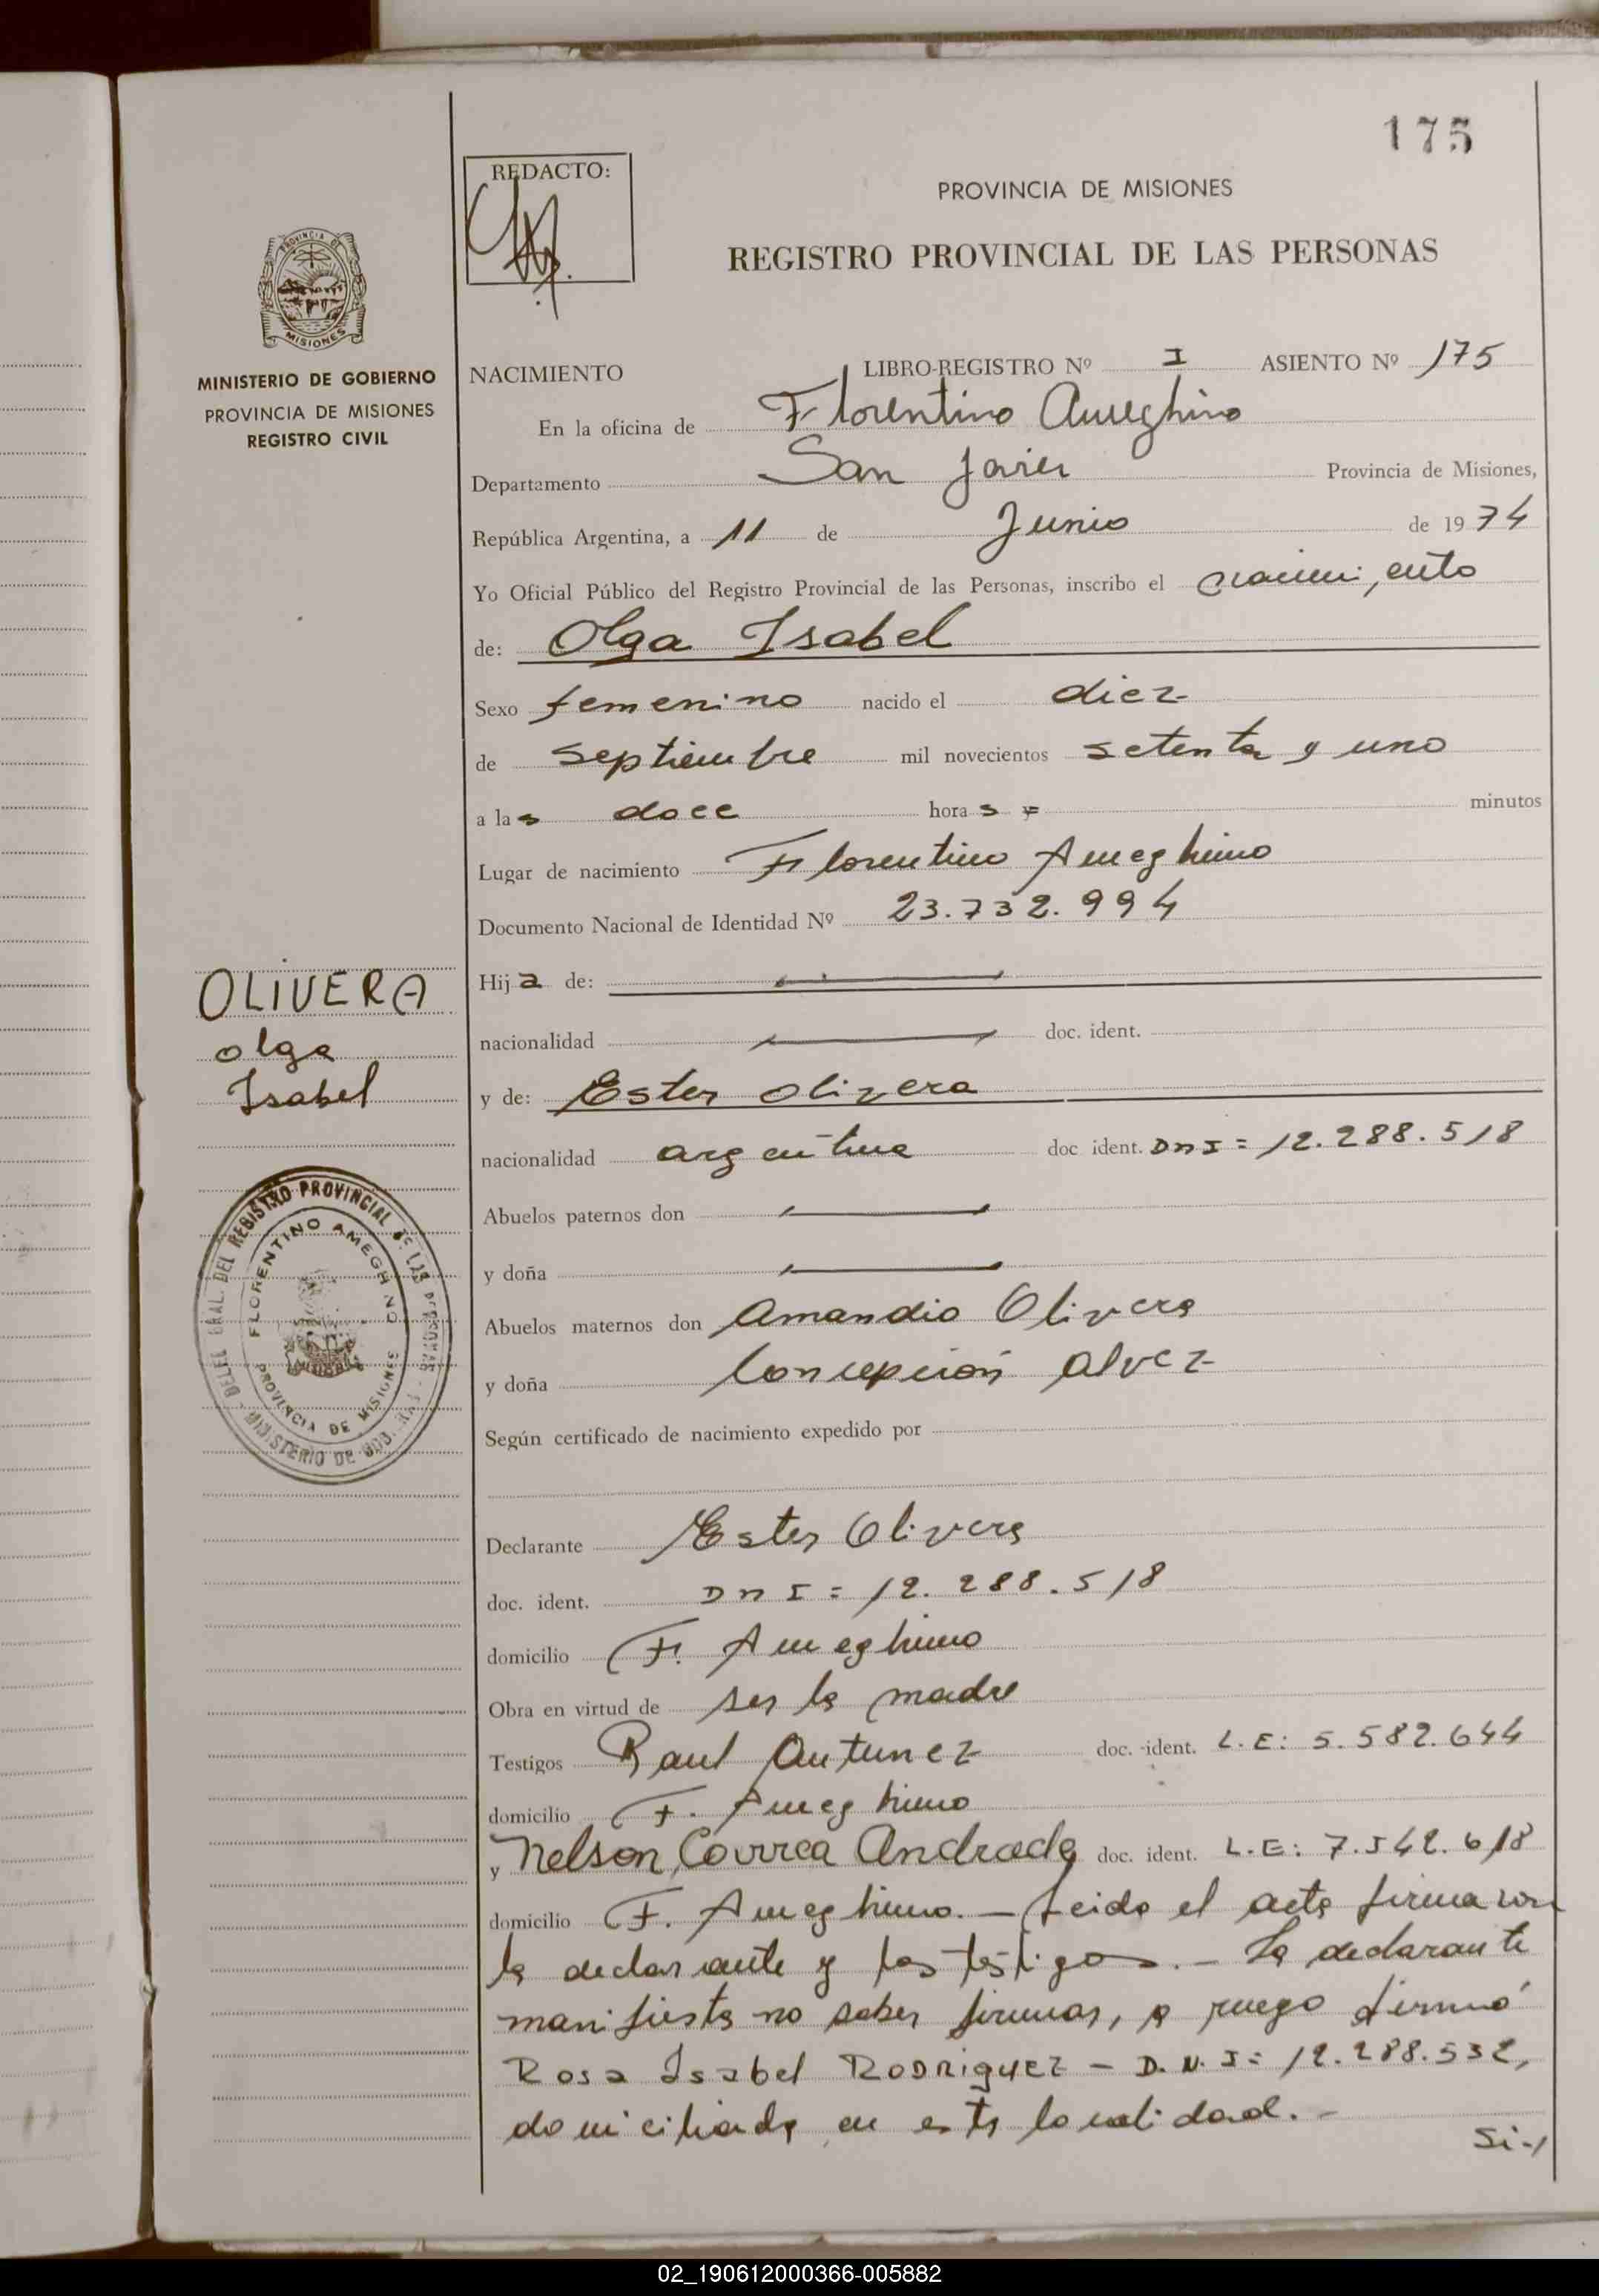 175
REDACTO:
PROVINCIA DE MISIONES
REGISTRO PROVINCIAL DE LAS PERSONAS
PROVINCIA DE
MISIONES
MINISTERIO DE GOBIERNO
PROVINCIA DE MISIONES
REGISTRO CIVIL
NACIMIENTO LIBRO-REGISTRO Nº I ASIENTO Nº 175
En la oficina de Florentino Ameghino
Departamento San Javier Provincia de Misiones,
República Argentina, a 11 de Junio de 1974
Yo Oficial Público del Registro Provincial de las Personas, inscribo el nacimiento
de: Olga Isabel
Sexo femenino nacido el diez
de septiembre mil novecientos setenta y uno
a las doce horas = minutos
Lugar de nacimiento Florentino Ameghino
Documento Nacional de Identidad Nº 23.732.994
Hija de: —
nacionalidad — doc. ident.
y de: Ester Olivera
nacionalidad argentina doc ident. DnI = 12.288.518
Abuelos paternos don —
y doña —
Abuelos maternos don Amandio Olivera
y doña Concepción Alvez
Según certificado de nacimiento expedido por
Declarante Ester Olivera
doc. ident. DnI = 12.288.518
domicilio F. Ameghino
Obra en virtud de ser la madre
Testigos Raul Antunez doc. ident. L.E: 5.582.644
domicilio F. Ameghino
y Nelson Correa Andrade doc. ident. L.E: 7.542.618
domicilio F. Ameghino. — Leida el acta firma con
la declarante y los testigos. — La declarante
manifiesta no saber firmar, a ruego firmó
Rosa Isabel Rodriguez — D.N.I= 12.288.532,
domiciliada en esta localidad. —
Si-/
OLIVERA
Olga
Isabel
DELEG. GRAL. DEL REGISTRO PROVINCIAL DE LAS PERSONAS
FLORENTINO AMEGHINO
PROVINCIA DE MISIONES
MINISTERIO DE GOB.
02_190612000366-005882